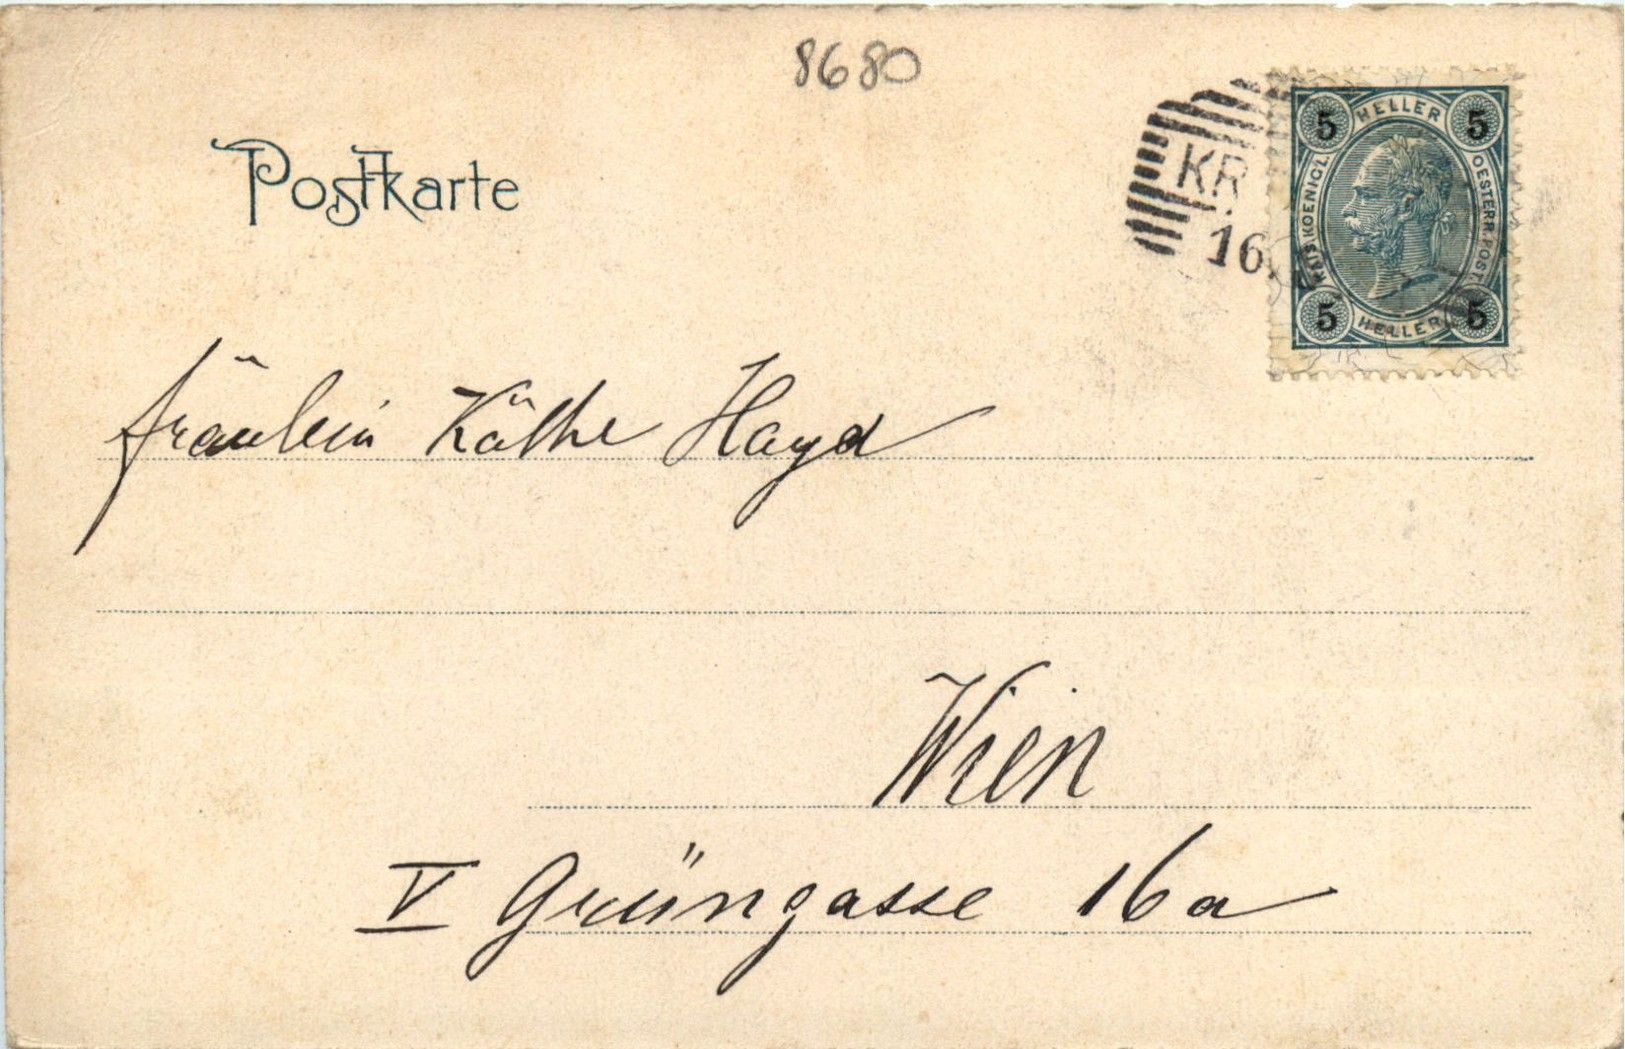 8680
Postkarte
KR
16.
5 HELLER 5
KAIS. KOENIGL.
OESTERR. POST.
5 HELLER 5
Fräulein Käthe Hayd
Wien
V Grüngasse 16a